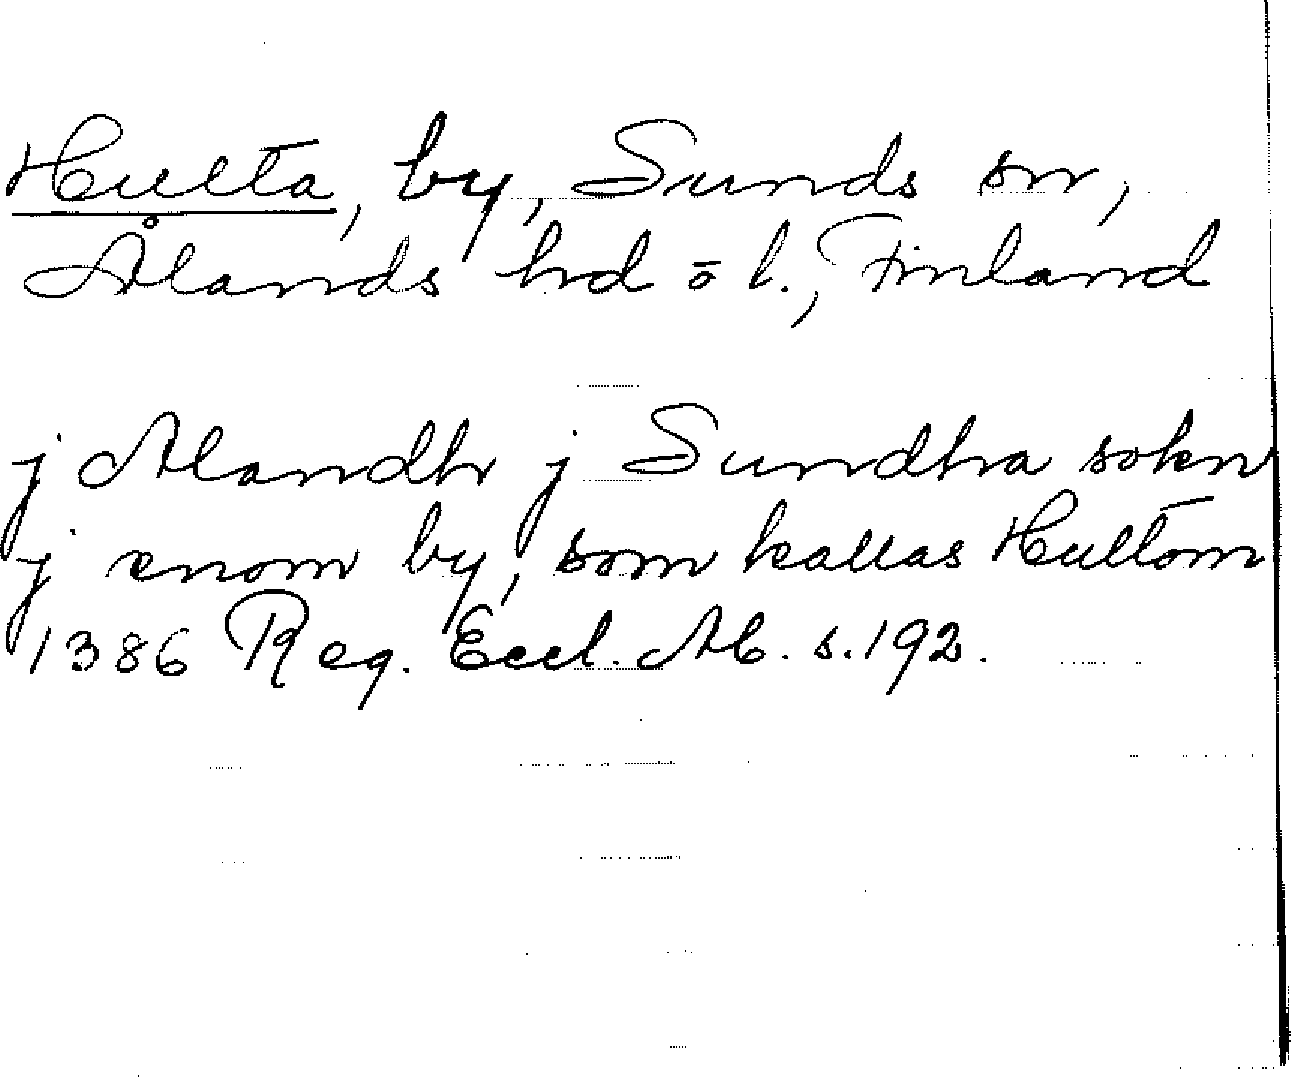 Hulta, by, Sunds sn,
Ålands hd o l., Finland
j Alandh j Sundha sokn
j enom by, som kallas Hultom
1386 Reg. Eccl. Ab. s. 192.